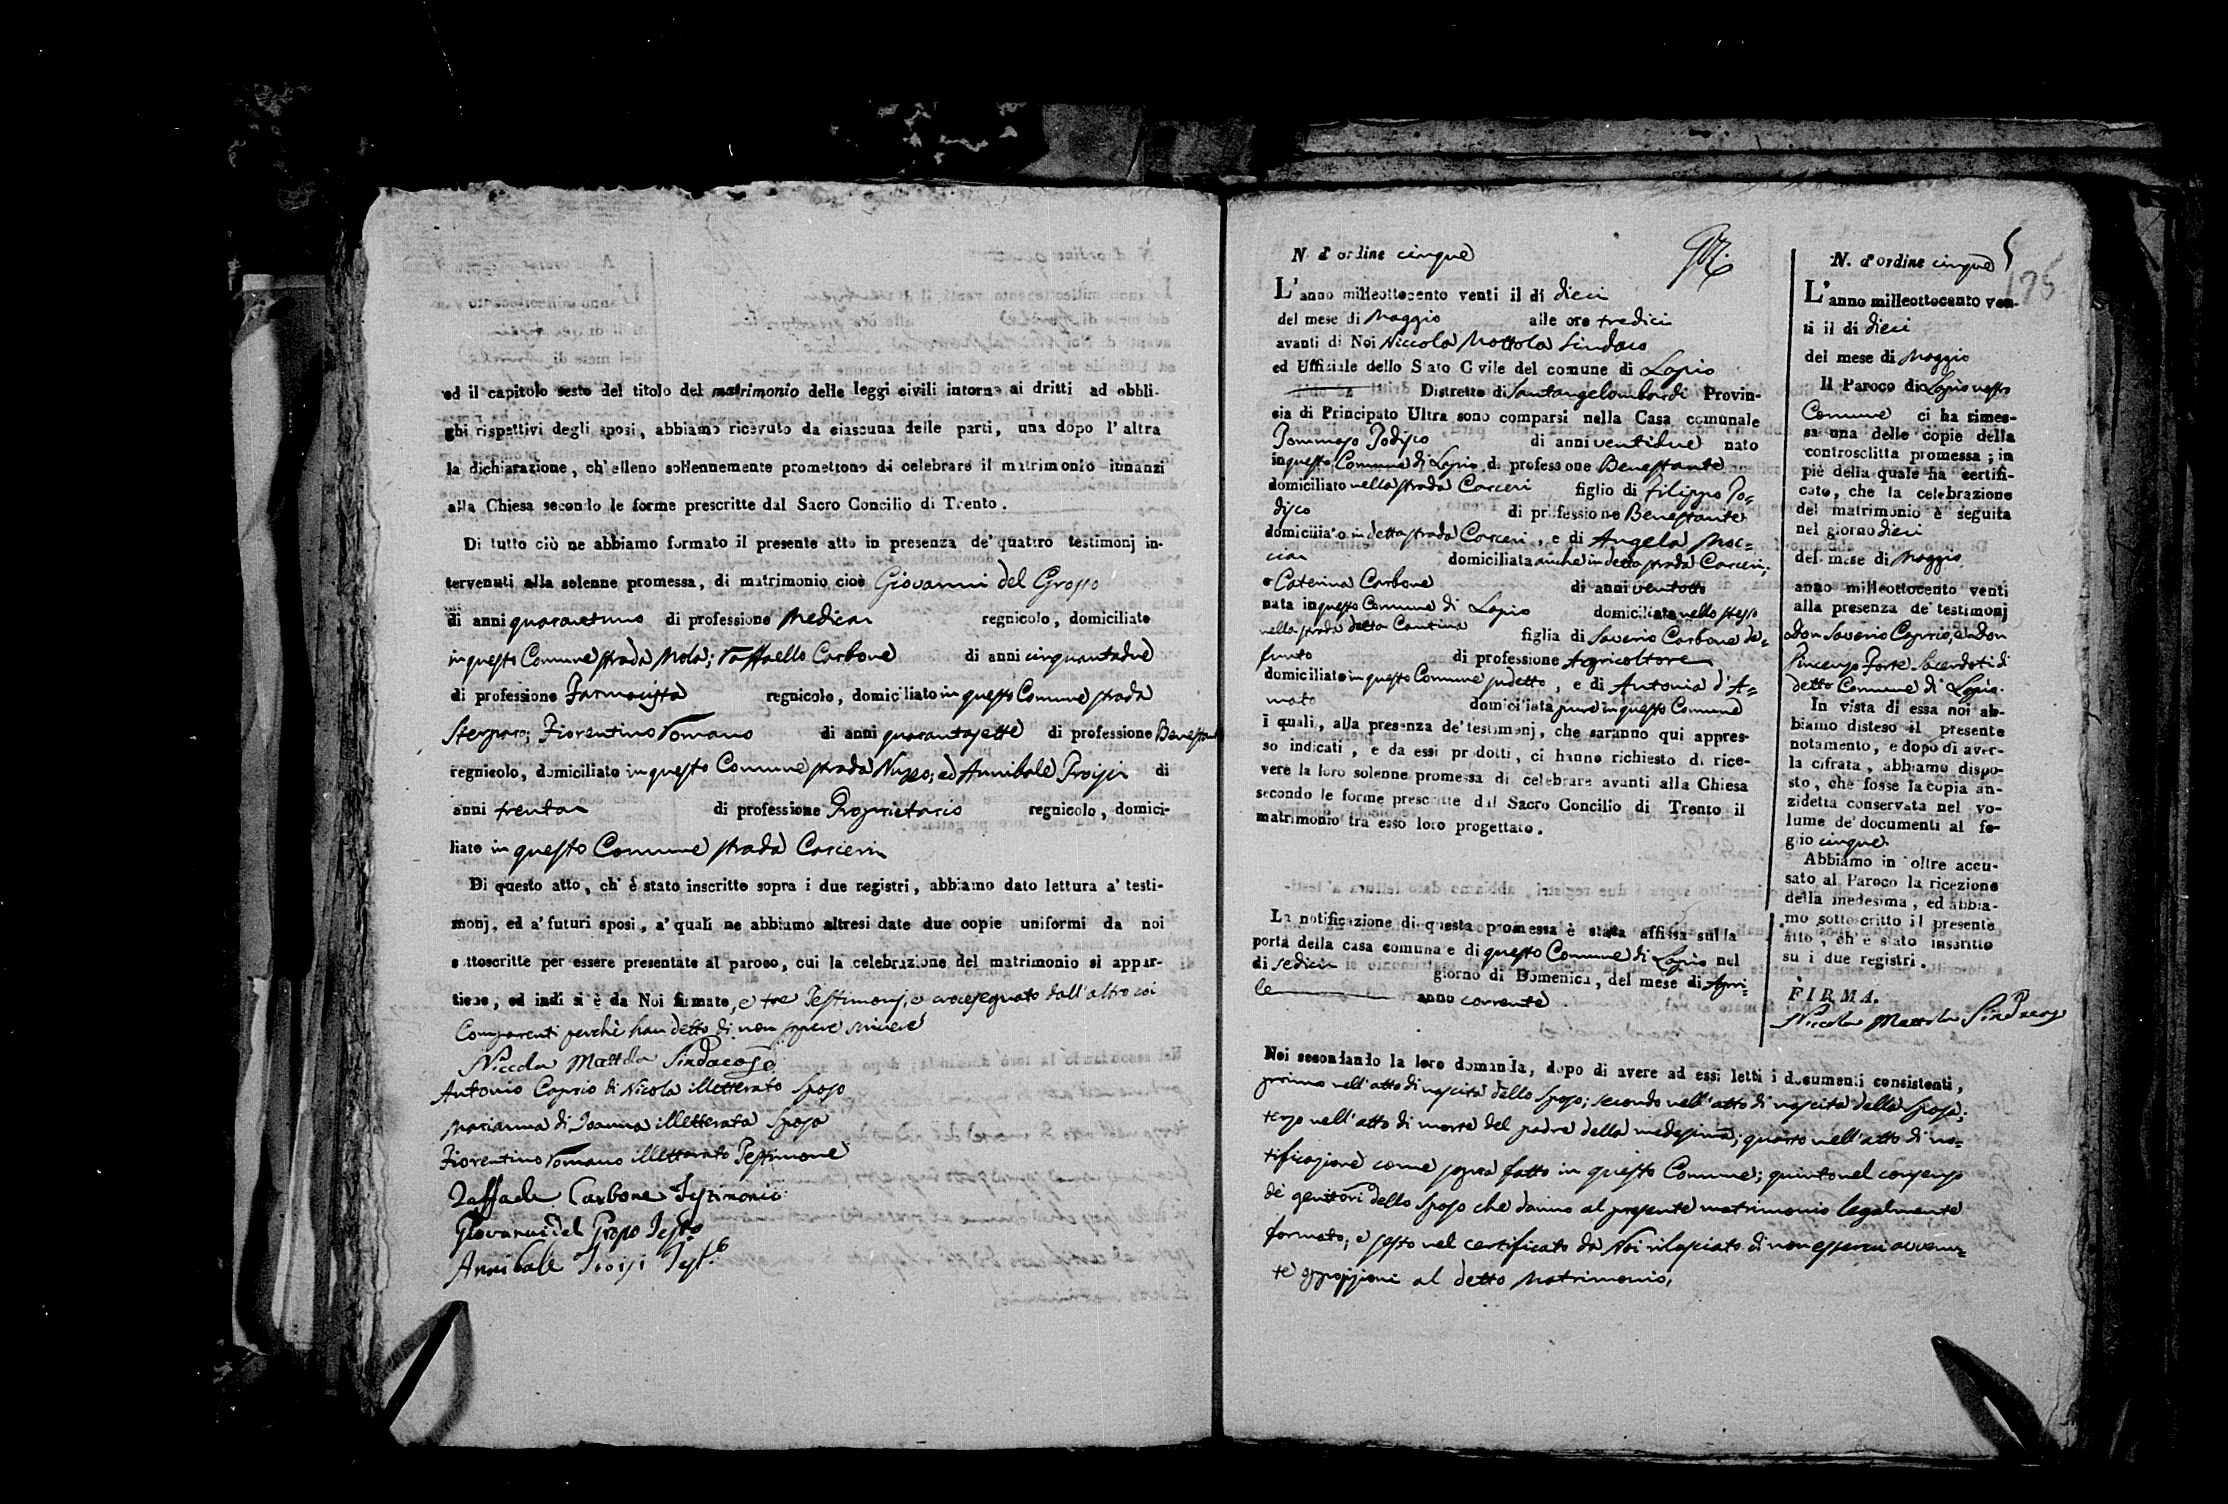 ed il capitolo sesto del titolo del matrimonio delle leggi civili intorno ai dritti ad obbli-
ghi rispettivi degli sposi, abbiamo ricevuto da ciascuna delle parti, una dopo l'altra
la dichiarazione, ch'elleno sollennemente promettono di celebrare il matrimonio innanzi
alla Chiesa secondo le forme prescritte dal Sacro Concilio di Trento.
Di tutto ciò ne abbiamo formato il presente atto in presenza de' quattro testimonj in-
tervenuti alla solenne promessa, di matrimonio cioè Giovanni del Grosso
di anni quarantuno di professione Medico regnicolo, domiciliato
in questo Comune strada Mola; Raffaello Carbone di anni cinquantadue
di professione Farmacista regnicolo, domiciliato in questo Comune strada
Fiorentino Romano di anni quarantasette di professione Benestante
regnicolo, domiciliato in questo Comune strada Nuzzo; ed Annibale Troisi di
anni trenta di professione Proprietario regnicolo, domici-
liato in questo Comune strada Carceri
Di questo atto, ch'è stato inscritto sopra i due registri, abbiamo dato lettura a' testi-
monj, ed a' futuri sposi, a' quali ne abbiamo altresi date due copie uniformi da noi
sottoscritte per essere presentate al paroco, cui la celebrazione del matrimonio si appar-
tiene, ed indi si è da Noi firmato, e tre Testimonj, e crocesegnato dall'altro coi
Comparenti perchè han detto di non sapere scrivere
Niccola Mottola Sindaco
Antonio Caprio di Nicola illetterato Sposo
Marianna di Joanna illetterata Sposa
Fiorentino Romano illetterato Testimone
Raffaele Carbone Testimonio
Giovanni del Grosso Test.º
Annibale Troisi Test.º
N. d'ordine cinque
L'anno milleottocento venti il di dieci
del mese di Maggio alle ore tredici
avanti di Noi Niccola Mottola Sindaco
ed Uffiziale dello Stato Civile del comune di Lapio
Distretto di Santangelombardi Provin-
cia di Principato Ultra sono comparsi nella Casa comunale
Tommaso Todisco di anni ventidue nato
in questo Comune di Lapio di professione Benestante
domiciliato nella strada Carceri figlio di Filippo To=
disco di professione Benestante
domiciliato in detta strada Carceri, e di Angela Moc=
cia domiciliata anche in detta strada Carceri;
e Caterina Carbone di anni ventotto
nata in questo Comune di Lapio domiciliata nello stesso
nella strada detta Cantina figlia di Saverio Carbone de=
funto di professione Agricoltore
domiciliato in questo Comune sudetto, e di Antonia d'A=
mato domiciliata pure in questo Comune
i quali, alla presenza de' testimonj, che saranno qui appres-
so indicati, e da essi prodotti, ci hanno richiesto di rice-
vere la loro solenne promessa di celebrare avanti alla Chiesa
secondo le forme prescritte dal Sacro Concilio di Trento il
matrimonio tra esso loro progettato.
La notificazione di questa promessa è stata affissa sulla
porta della casa comunale di questo Comune di Lapio nel
di sedici giorno di Domenica, del mese di Apri=
le anno corrente.
Noi secondando la loro domanda, dopo di avere ad essi letti i documenti consistenti,
primo nell'atto di nascita dello Sposo; secondo nell'atto di nascita della Sposa;
terzo nell'atto di morte del padre della medesima; quarto nell'atto di no=
tificazione come sopra fatto in questo Comune; quinto nel consenso
de' genitori dello Sposo che danno al presente matrimonio legalmente
formato; e sesto nel certificato da Noi rilasciato di non esserci avvenu=
te opposizioni al detto Matrimonio,
N. d'ordine cinque
175
L'anno milleottocento ven-
ti il di dieci
del mese di Maggio
Il Paroco di Lapio nostro
Comune ci ha rimes-
sa una delle copie della
controscritta promessa; in
piè della quale ha certifi-
cato, che la celebrazione
del matrimonio è seguita
nel giorno dieci
del mese di Maggio
anno milleottocento venti
alla presenza de' testimonj
don Saverio Caprio, e don
Vincenzo Forte Sacerdoti di
detto Comune di Lapio.
In vista di essa noi ab-
biamo disteso il presente
notamento, e dopo di aver-
la cifrata, abbiamo dispo-
sto, che fosse la copia an-
zidetta conservata nel vo-
lume de' documenti al fo-
glio cinque.
Abbiamo in oltre accu-
sato al Paroco la ricezione
della medesima, ed abbia-
mo sottoscritto il presente
atto, ch'è stato inscritto
su i due registri.
FIRMA.
Niccola Mottola Sindaco